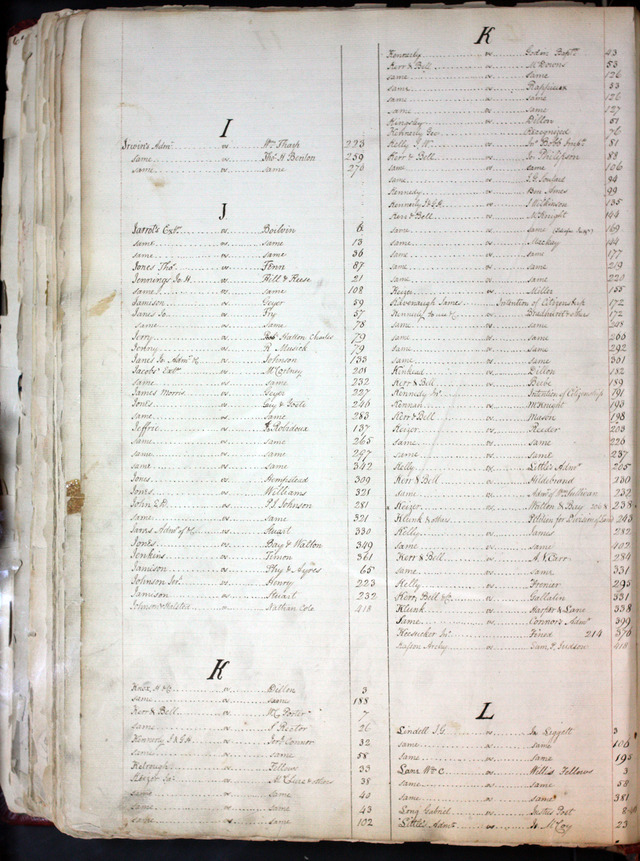 I
Irwin's Adm.r vs. Wm Tharp 223
same vs. Tho.s H Benton 259
same vs. same 270
J
Jarrot's Ext.r vs. Boilvin 6
same vs. same 13
same vs. same 36
Jones Tho.s vs. Fenn 87
Jennings Jo. H. vs. Hill & Reese 21
same vs. same 108
Jamison vs. Geyer 59
Janes Jo. vs. Fry 57
same vs. same 78
Jerry vs. Hatton Charles 79
Jenny vs. R Musick 79
Janes Jo. Adm.r vs. Johnson 133
Jacobs Ext.r vs. McCartney 201
same vs. same 232
James Morris vs. Geyer 227
Jones vs. Guy & Goste 246
same vs. same 283
Jeffrie vs. Robidoux 137
same vs. same 265
same vs. same 297
same vs. same 342
Jones vs. Hempstead 309
Jones vs. Williams 321
John E.D. vs. Johnson 281
same vs. same 321
Adm.r of vs. Stuart 330
Jones vs. Day & Walton 349
Jenkins vs. 361
Jamison vs. Phy & Ayres 65
Johnson Jn.o vs. Henry 223
Jamison vs. Stuart 232
Johnson & Halsted vs. Nathan Cole 418
K
Knox vs. Dillon 3
same vs. same 188
Kerr & Bell vs. Porter 7
same vs. Rector 26
Kennerly vs. Connor 32
same vs. same 58
vs. Fellows 33
Keizer vs. McClure & others 38
same vs. same 40
same vs. same 43
same vs. same 102
K
Kennerly vs. Godin Bap.te 43
Kerr & Bell vs. McDowns 53
same vs. same 126
same vs. 53
same vs. same 126
same vs. same 127
Kingsley vs. Dillon 57
Kennerly Geo. Recognized 76
Kelly J.W. vs. 81
Kerr & Bell vs. Philipson 83
same vs. same 106
same vs. Soulard 94
Kennedy vs. Ben Ames 99
Kennerly vs. Wilkinson 135
Kerr & Bell vs. McKnight 144
same vs. same 169
same vs. Mackey 144
same vs. same 177
same vs. same 219
same vs. same 220
vs. Miller 155
Kavenaugh James Intention of Citizenship 172
Kennerly vs. & others 172
same vs. same 208
same vs. same 260
same vs. same 292
same vs. same 301
Kinkead vs. Dillon 182
Kerr & Bell vs. Bebe 189
Kennedy Jn.o Intention of Citizenship 191
Kennan vs. McKnight 193
Kerr & Bell vs. Mason 198
Keizer vs. Reeder 203
same vs. same 226
same vs. same 237
Kelly vs. Little's Adm.r 205
Kerr & Bell vs. Hildebrand 230
same vs. Adm.r of Wm Sullivan 232
Keizer vs. Walton & Bay 206 & 238
Klunk & others Petition for Division of Land 243
Kelly vs. James 282
same vs. same 402
Kerr & Bell vs. A. Carr 284
same vs. same 331
Kelly vs. 295
Kerr, Bell & Co. vs. Gallatin 331
Klunk vs. Harper & Lane 338
Same vs. Connor's Adm.r 399
Keesecker Jn.o vs. Fined 214 376
vs. Sam.l Judson 418
L
Lindell J.G. vs. Jn. Leggett 3
same vs. same 106
same vs. same 195
Lane Wm C. vs. Willis Fellows 3
same vs. same 58
same vs. same 381
Long Gabriel vs. Justus Post
Little's Adm.r vs. Jn. McCoy 23